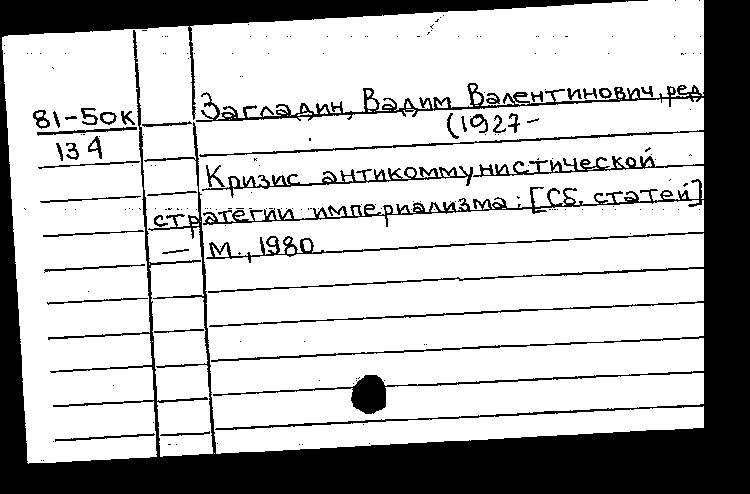 81-50к Загладин, Вадим Валентинович, ред.
134 (1927-
Кризис антикоммунистической
стратегии империализма: [Сб. статей]
— М., 1980.